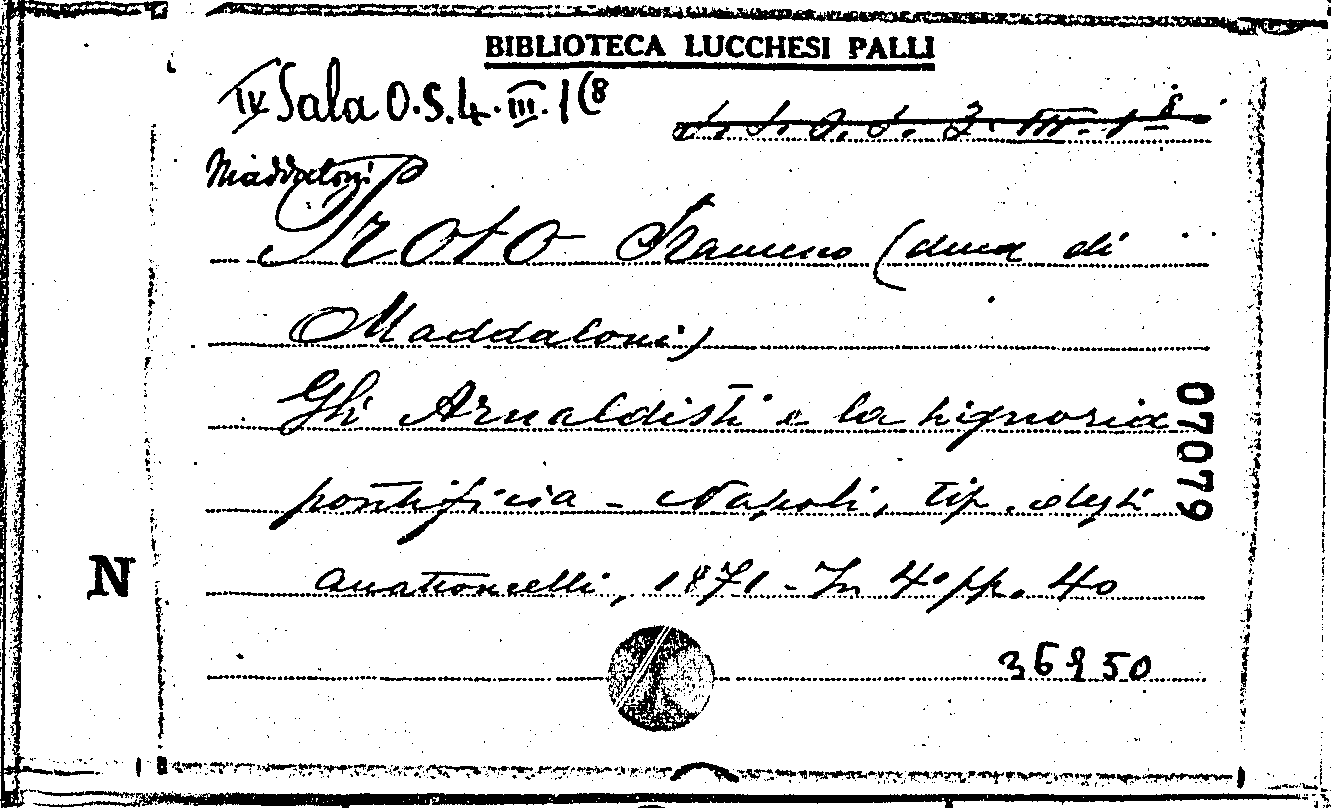 BIBLIOTECA LUCCHESI PALLI
IX Sala O.S.4.III.1(8
Maddaloni
Proto Francesco (duca di
Maddaloni)
Gli Arnaldisti e la signoria
pontificia - Napoli, tip. degli
Accattoncelli, 1871 - In 4° pp. 40
36950
07079
N